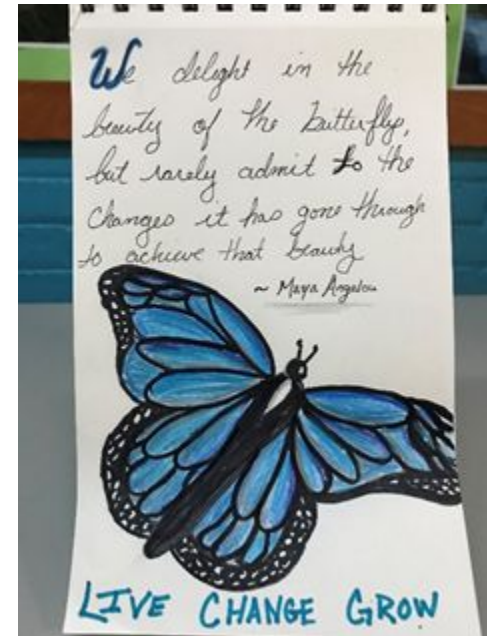 We delight in the
beauty of the butterfly,
but rarely admit to the
changes it has gone through
to achieve that beauty
~ Maya Angelou
LIVE CHANGE GROW